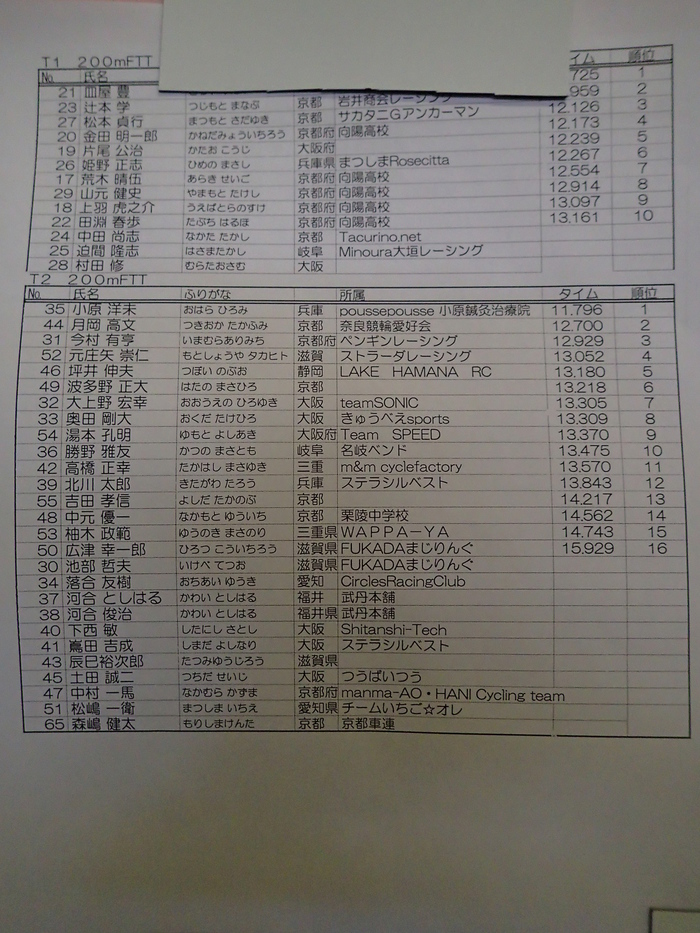 T1 200mFTT
No. 氏名 イム 順位
21 皿屋 豊 725 1
23 辻本 学 つじもと まなぶ 京都 岩井商会レーシング 959 2
27 松本 貞行 まつもと さだゆき 京都 サカタニGアンカーマン 12.126 3
20 金田 明一郎 かねだみょういちろう 京都府 向陽高校 12.173 4
19 片尾 公治 かたお こうじ 大阪府 12.239 5
26 姫野 正志 ひめの まさし 兵庫県 まつしまRosecitta 12.267 6
17 荒木 晴伍 あらき せいご 京都府 向陽高校 12.554 7
29 山元 健史 やまもと たけし 京都府 向陽高校 12.914 8
18 上羽 虎之介 うえばとらのすけ 京都府 向陽高校 13.097 9
22 田淵 春歩 たぶち はるほ 京都府 向陽高校 13.161 10
24 中田 尚志 なかた たかし 京都 Tacurino.net
25 迫間 隆志 はさまたかし 岐阜 Minoura大垣レーシング
28 村田 修 むらたおさむ 大阪
T2 200mFTT
No. 氏名 ふりがな 所属 タイム 順位
35 小原 洋未 おはら ひろみ 兵庫 poussepousse 小原鍼灸治療院 11.796 1
44 月岡 高文 つきおか たかふみ 京都 奈良競輪愛好会 12.700 2
31 今村 有亨 いまむらありみち 京都府 ペンギンレーシング 12.929 3
52 元庄矢 崇仁 もとしょうや タカヒト 滋賀 ストラーダレーシング 13.052 4
46 坪井 伸夫 つぼい のぶお 静岡 LAKE HAMANA RC 13.180 5
49 波多野 正大 はたの まさひろ 京都 13.218 6
32 大上野 宏幸 おおうえの ひろゆき 大阪 teamSONIC 13.305 7
33 奥田 剛大 おくだ たけひろ 大阪 きゅうべえsports 13.309 8
54 湯本 孔明 ゆもと よしあき 大阪府 Team SPEED 13.370 9
36 勝野 雅友 かつの まさとも 岐阜 名岐ベンド 13.475 10
42 高橋 正幸 たかはし まさゆき 三重 m&m cyclefactory 13.570 11
39 北川 太郎 きたがわ たろう 兵庫 ステラシルベスト 13.843 12
55 吉田 孝信 よしだ たかのぶ 京都 14.217 13
48 中元 優一 なかもと ゆういち 京都 栗陵中学校 14.562 14
53 柚木 政範 ゆうのき まさのり 三重県 WAPPA－YA 14.743 15
50 広津 幸一郎 ひろつ こういちろう 滋賀県 FUKADAまじりんぐ 15.929 16
30 池部 哲夫 いけべ てつお 滋賀県 FUKADAまじりんぐ
34 落合 友樹 おちあい ゆうき 愛知 CirclesRacingClub
37 河合 としはる かわい としはる 福井 武丹本舗
38 河合 俊治 かわい としはる 福井県 武丹本舗
40 下西 敏 したにし さとし 大阪 Shitanshi-Tech
41 嶌田 吉成 しまだ よしなり 大阪 ステラシルベスト
43 辰巳裕次郎 たつみゆうじろう 滋賀県
45 土田 誠二 つちだ せいじ 大阪 つうばいつう
47 中村 一馬 なかむら かずま 京都府 manma-AO・HANI Cycling team
51 松嶋 一衛 まつしま いちえ 愛知県 チームいちご☆オレ
65 森嶋 健太 もりしまけんた 京都 京都車連